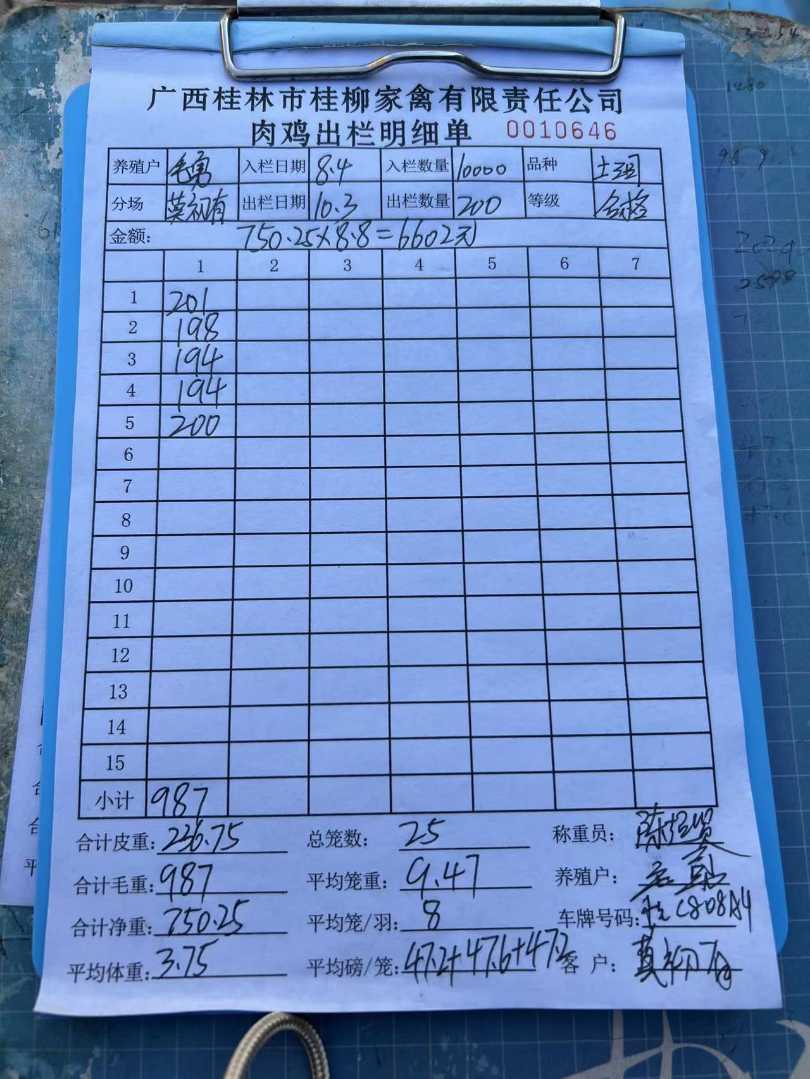 广西桂林市桂柳家禽有限责任公司
肉鸡出栏明细单 0010646
养殖户 入栏日期 8.4 入栏数量 10000 品种
分场 莫初有 出栏日期 10.3 出栏数量 200 等级 合格
金额: 750.25×8.8=6602元
1 2 3 4 5 6 7
1 201
2 198
3 194
4 194
5 200
6
7
8
9
10
11
12
13
14
15
小计 987
合计皮重: 236.75 总笼数: 25 称重员:
合计毛重: 987 平均笼重: 9.47 养殖户:
合计净重: 750.25 平均笼/羽: 8 车牌号码:
平均体重: 3.75 平均磅/笼: 47.2+47.6+47.2 客户: 莫初有